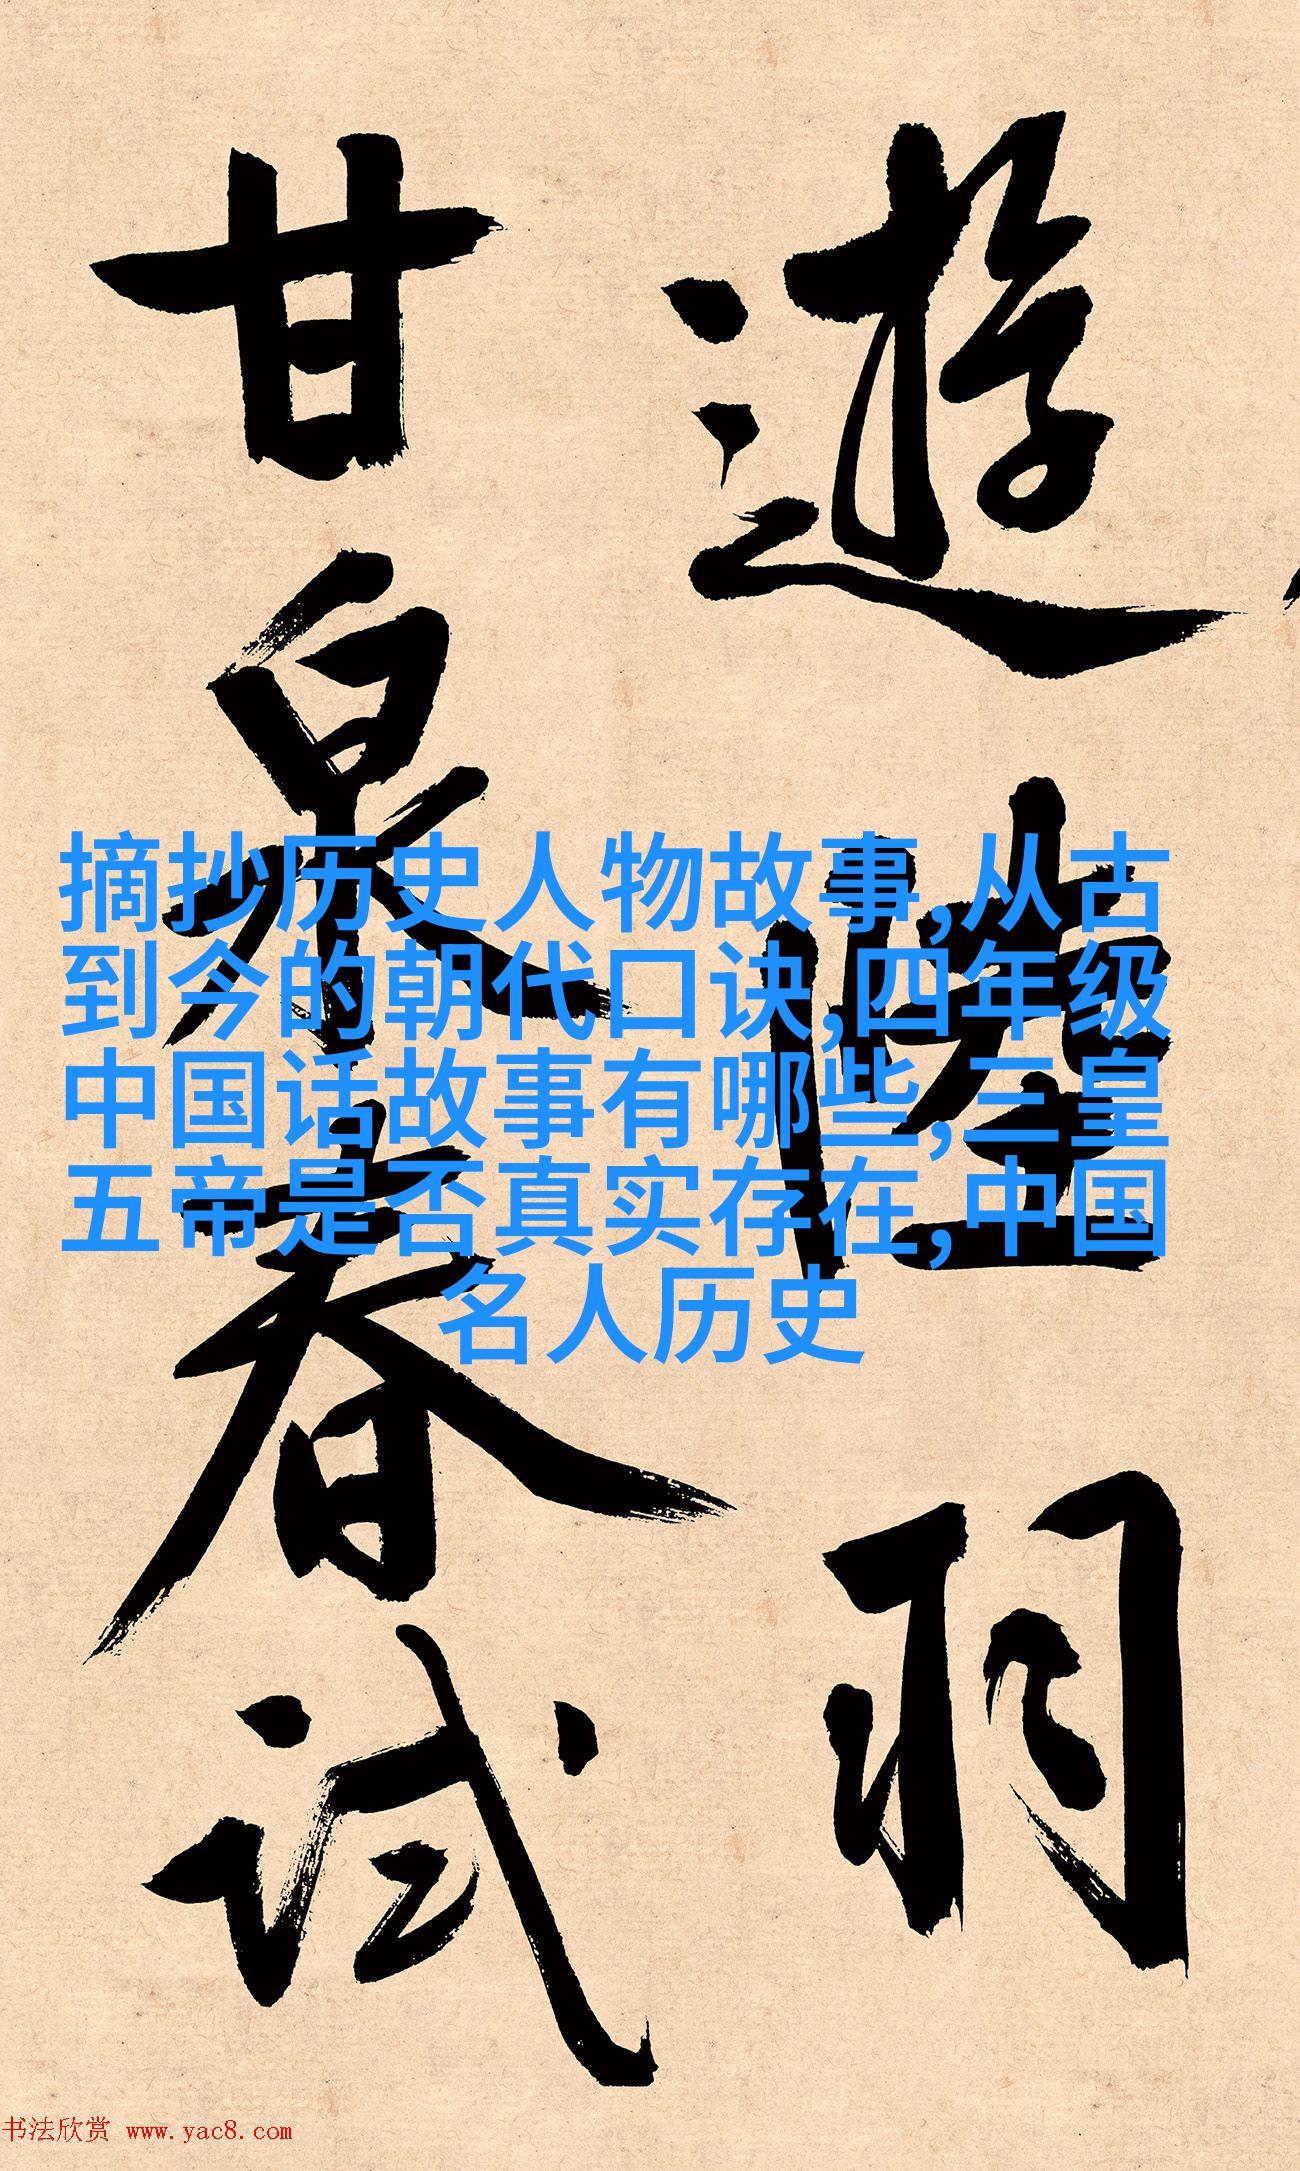 遊陸羽
甘泉春試
摘抄历史人物故事,从古
到今的朝代口诀,四年级
中国话故事有哪些,三皇
五帝是否真实存在,中国
名人历史
书法欣赏 www.yac8.com